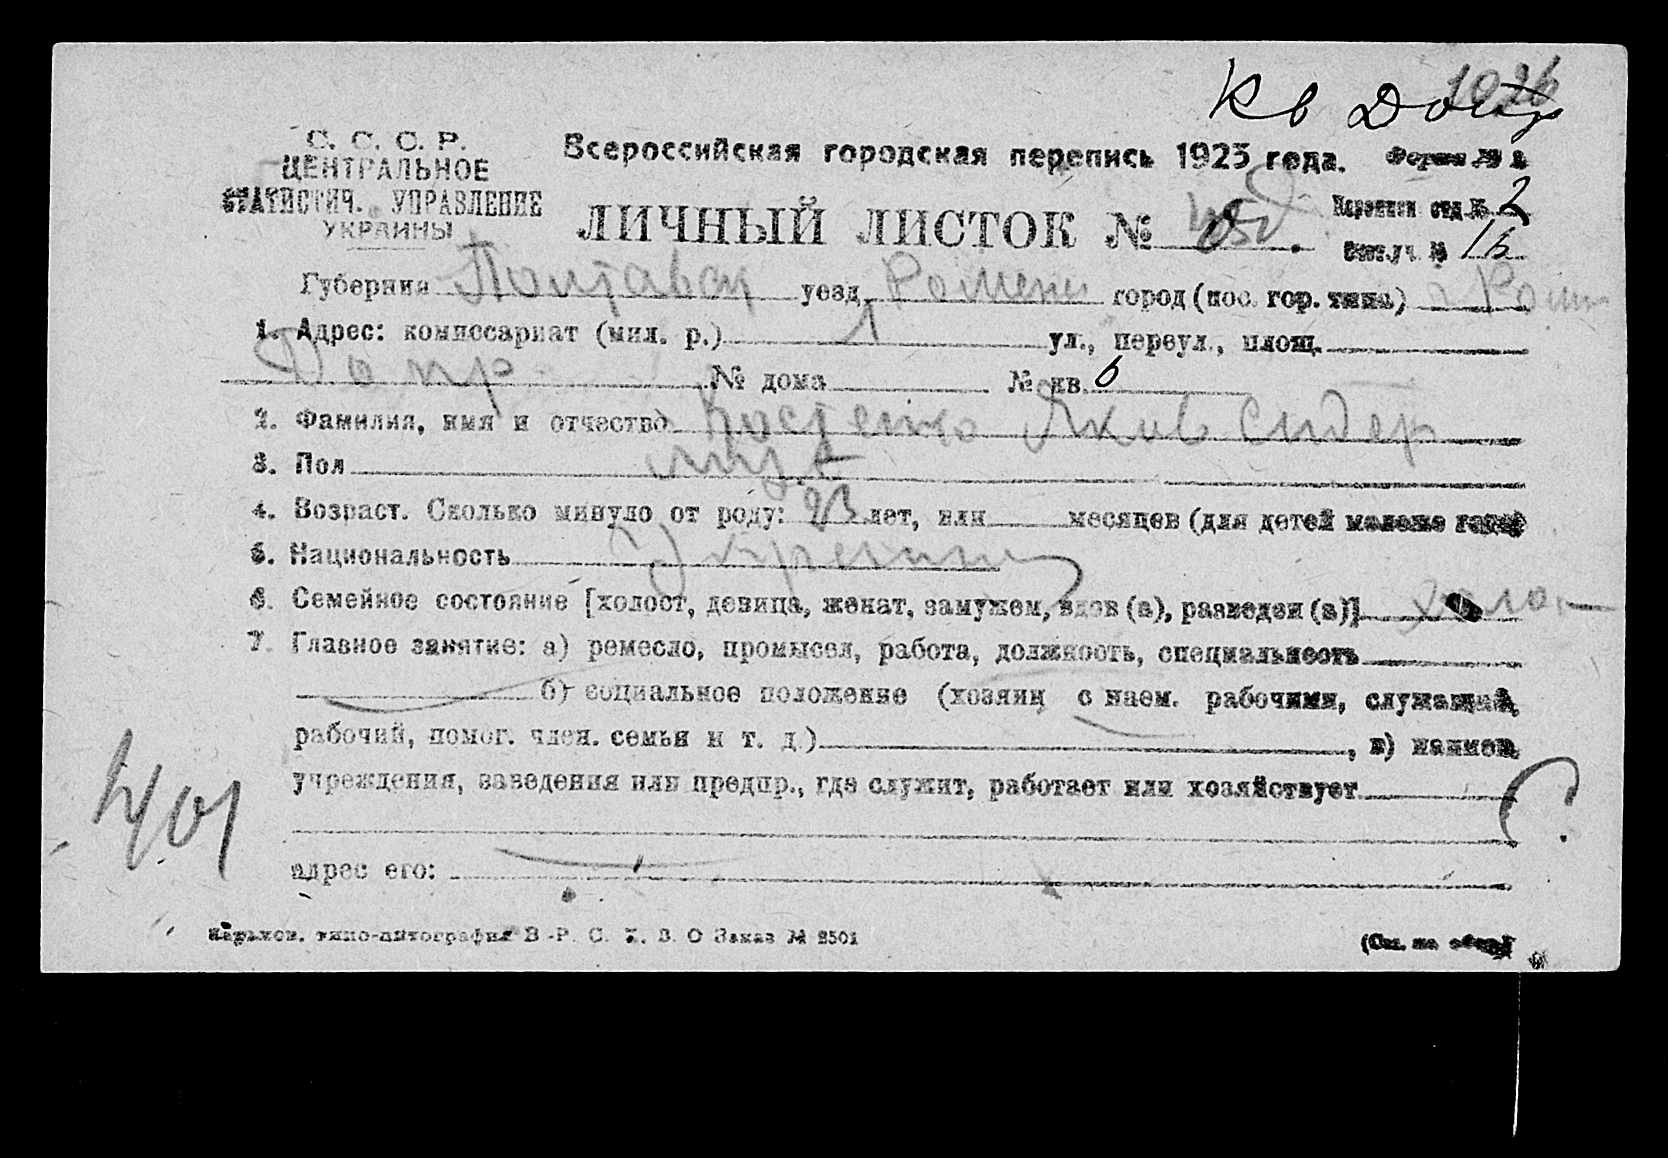 1926
Кв Допр
С. С. С. Р.
ЦЕНТРАЛЬНОЕ
СТАТИСТИЧ. УПРАВЛЕНИЕ
УКРАИНЫ
Всероссийская городская перепись 1923 года. Форма № 2
ЛИЧНЫЙ ЛИСТОК №
Переписн отд. № 2
Счет. уч. № 16
Губерния Полтавск уезд Роменск город (пос. гор. типа) г Ромн
1. Адрес: комиссариат (мил. р.) 1 ул., переул., площ.
Допр № дома № кв. 6
2. Фамилия, имя и отчество Костенко Яков Сидер
3. Пол муж
4. Возраст. Сколько минуло от роду: 23 лет, или месяцев (для детей моложе года)
5. Национальность Украинец
6. Семейное состояние [холост, девица, женат, замужем, вдов (а), разведен (а)] холос
7. Главное занятие: а) ремесло, промысел, работа, должность, специальность
б) социальное положение (хозяин с наем. рабочими, служащий,
рабочий, помог. член. семьи и т. д.) , в) наимен.
учреждения, заведения или предпр., где служит, работает или хозяйствует
?
401
адрес его:
Харьков. типо-литография В.-Р. С. Х. В. О Заказ № 2501
(См. на обор.)